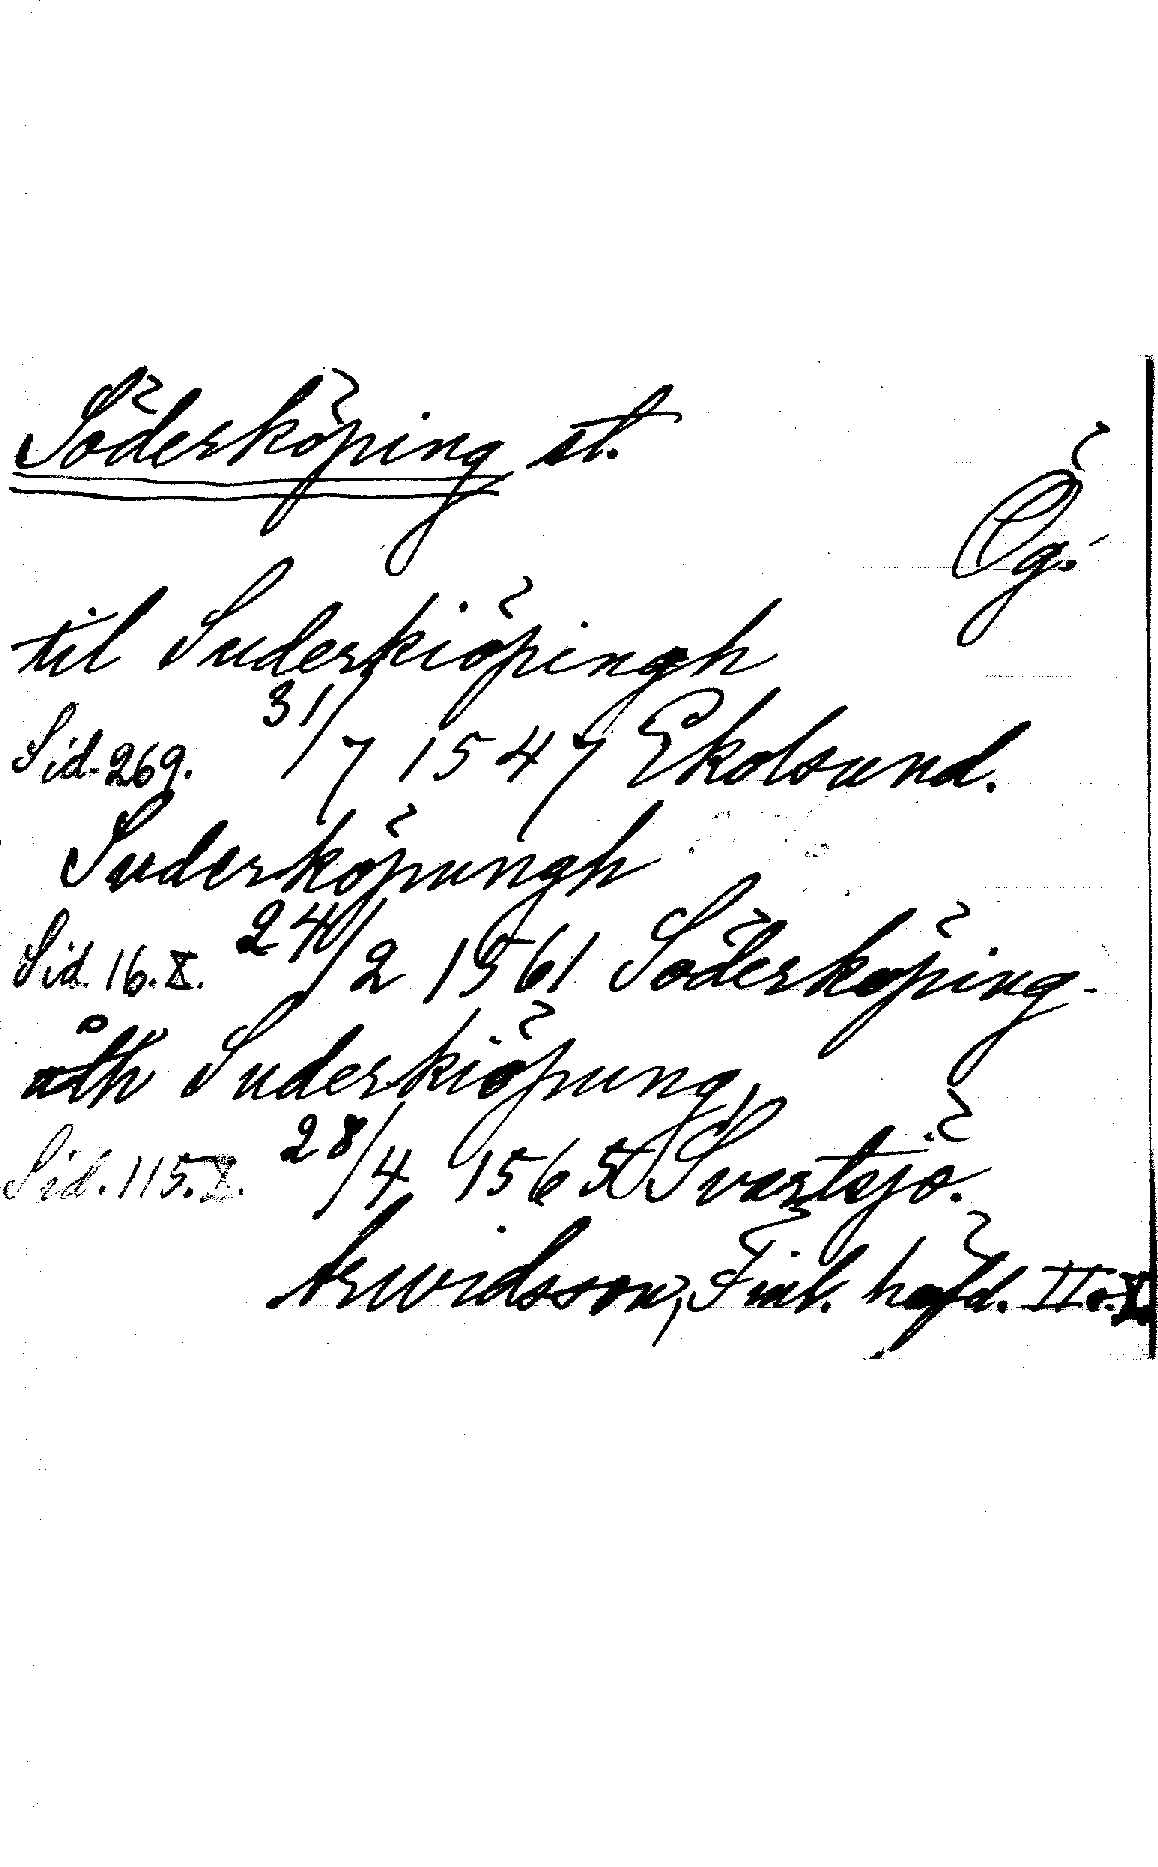 Söderköping st.
Ög.
til Suderkiöpingh
Sid. 269. 31/7 1547 Ekolsund.
Suderköpungh
Sid. 16. X. 24/2 1561 Söderköping
åth Suderkiöpung,
Sid. 115. X. 28/4 1565 Svartsjö.
Arwidsson, Finl. häfd. II o. X.